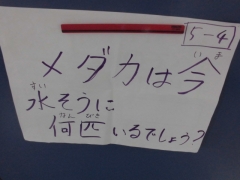 5-4
メダカは今
いま
水そうに
すい
何匹いるでしょう?
なん びき